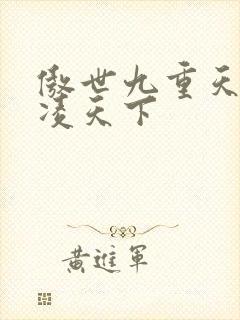 傲世九重天
凌天下
黄進軍